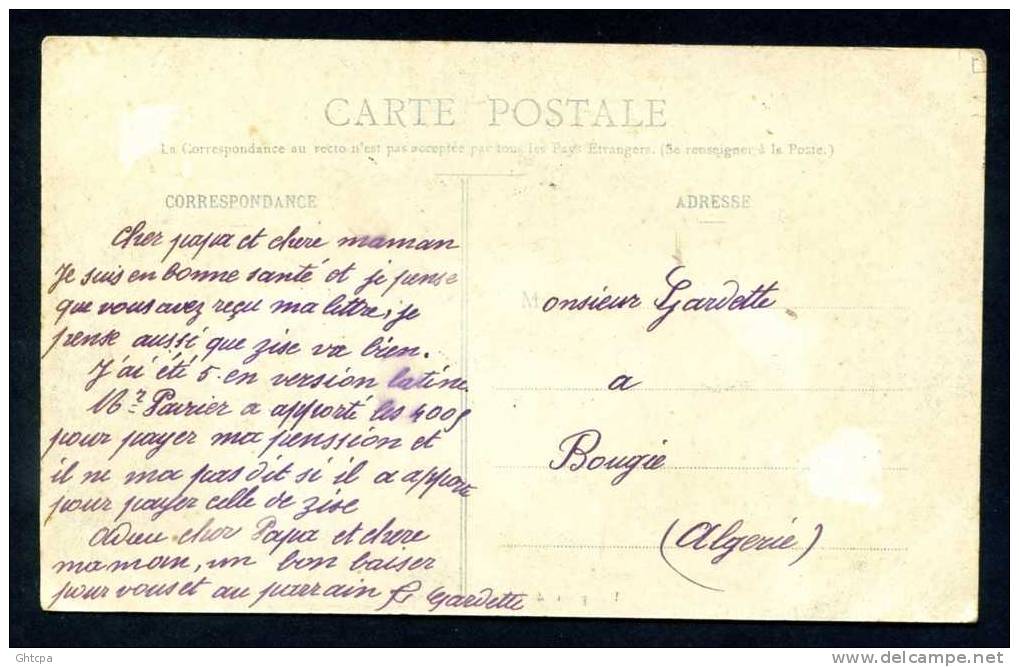 CARTE POSTALE
La Correspondance au recto n'est pas acceptée par tous les Pays Étrangers. (Se renseigner à la Poste.)
CORRESPONDANCE
cher papa et chere maman
Je suis en bonne santé et je pense
que vous avez reçu ma lettre, je
pense aussi que zise va bien.
J'ai été 5. en version latine
Mr Poirier a apporté les 400f
pour payer ma penssion et
il ne ma pas dit si il a apporté
pour payer celle de zise
adieu cher Papa et chere
maman, un bon baiser
pour vous et au parrain
Gardette
ADRESSE
Monsieur Gardette
a
Bougie
(Algerie)
Ghtcpa
delcampe.net